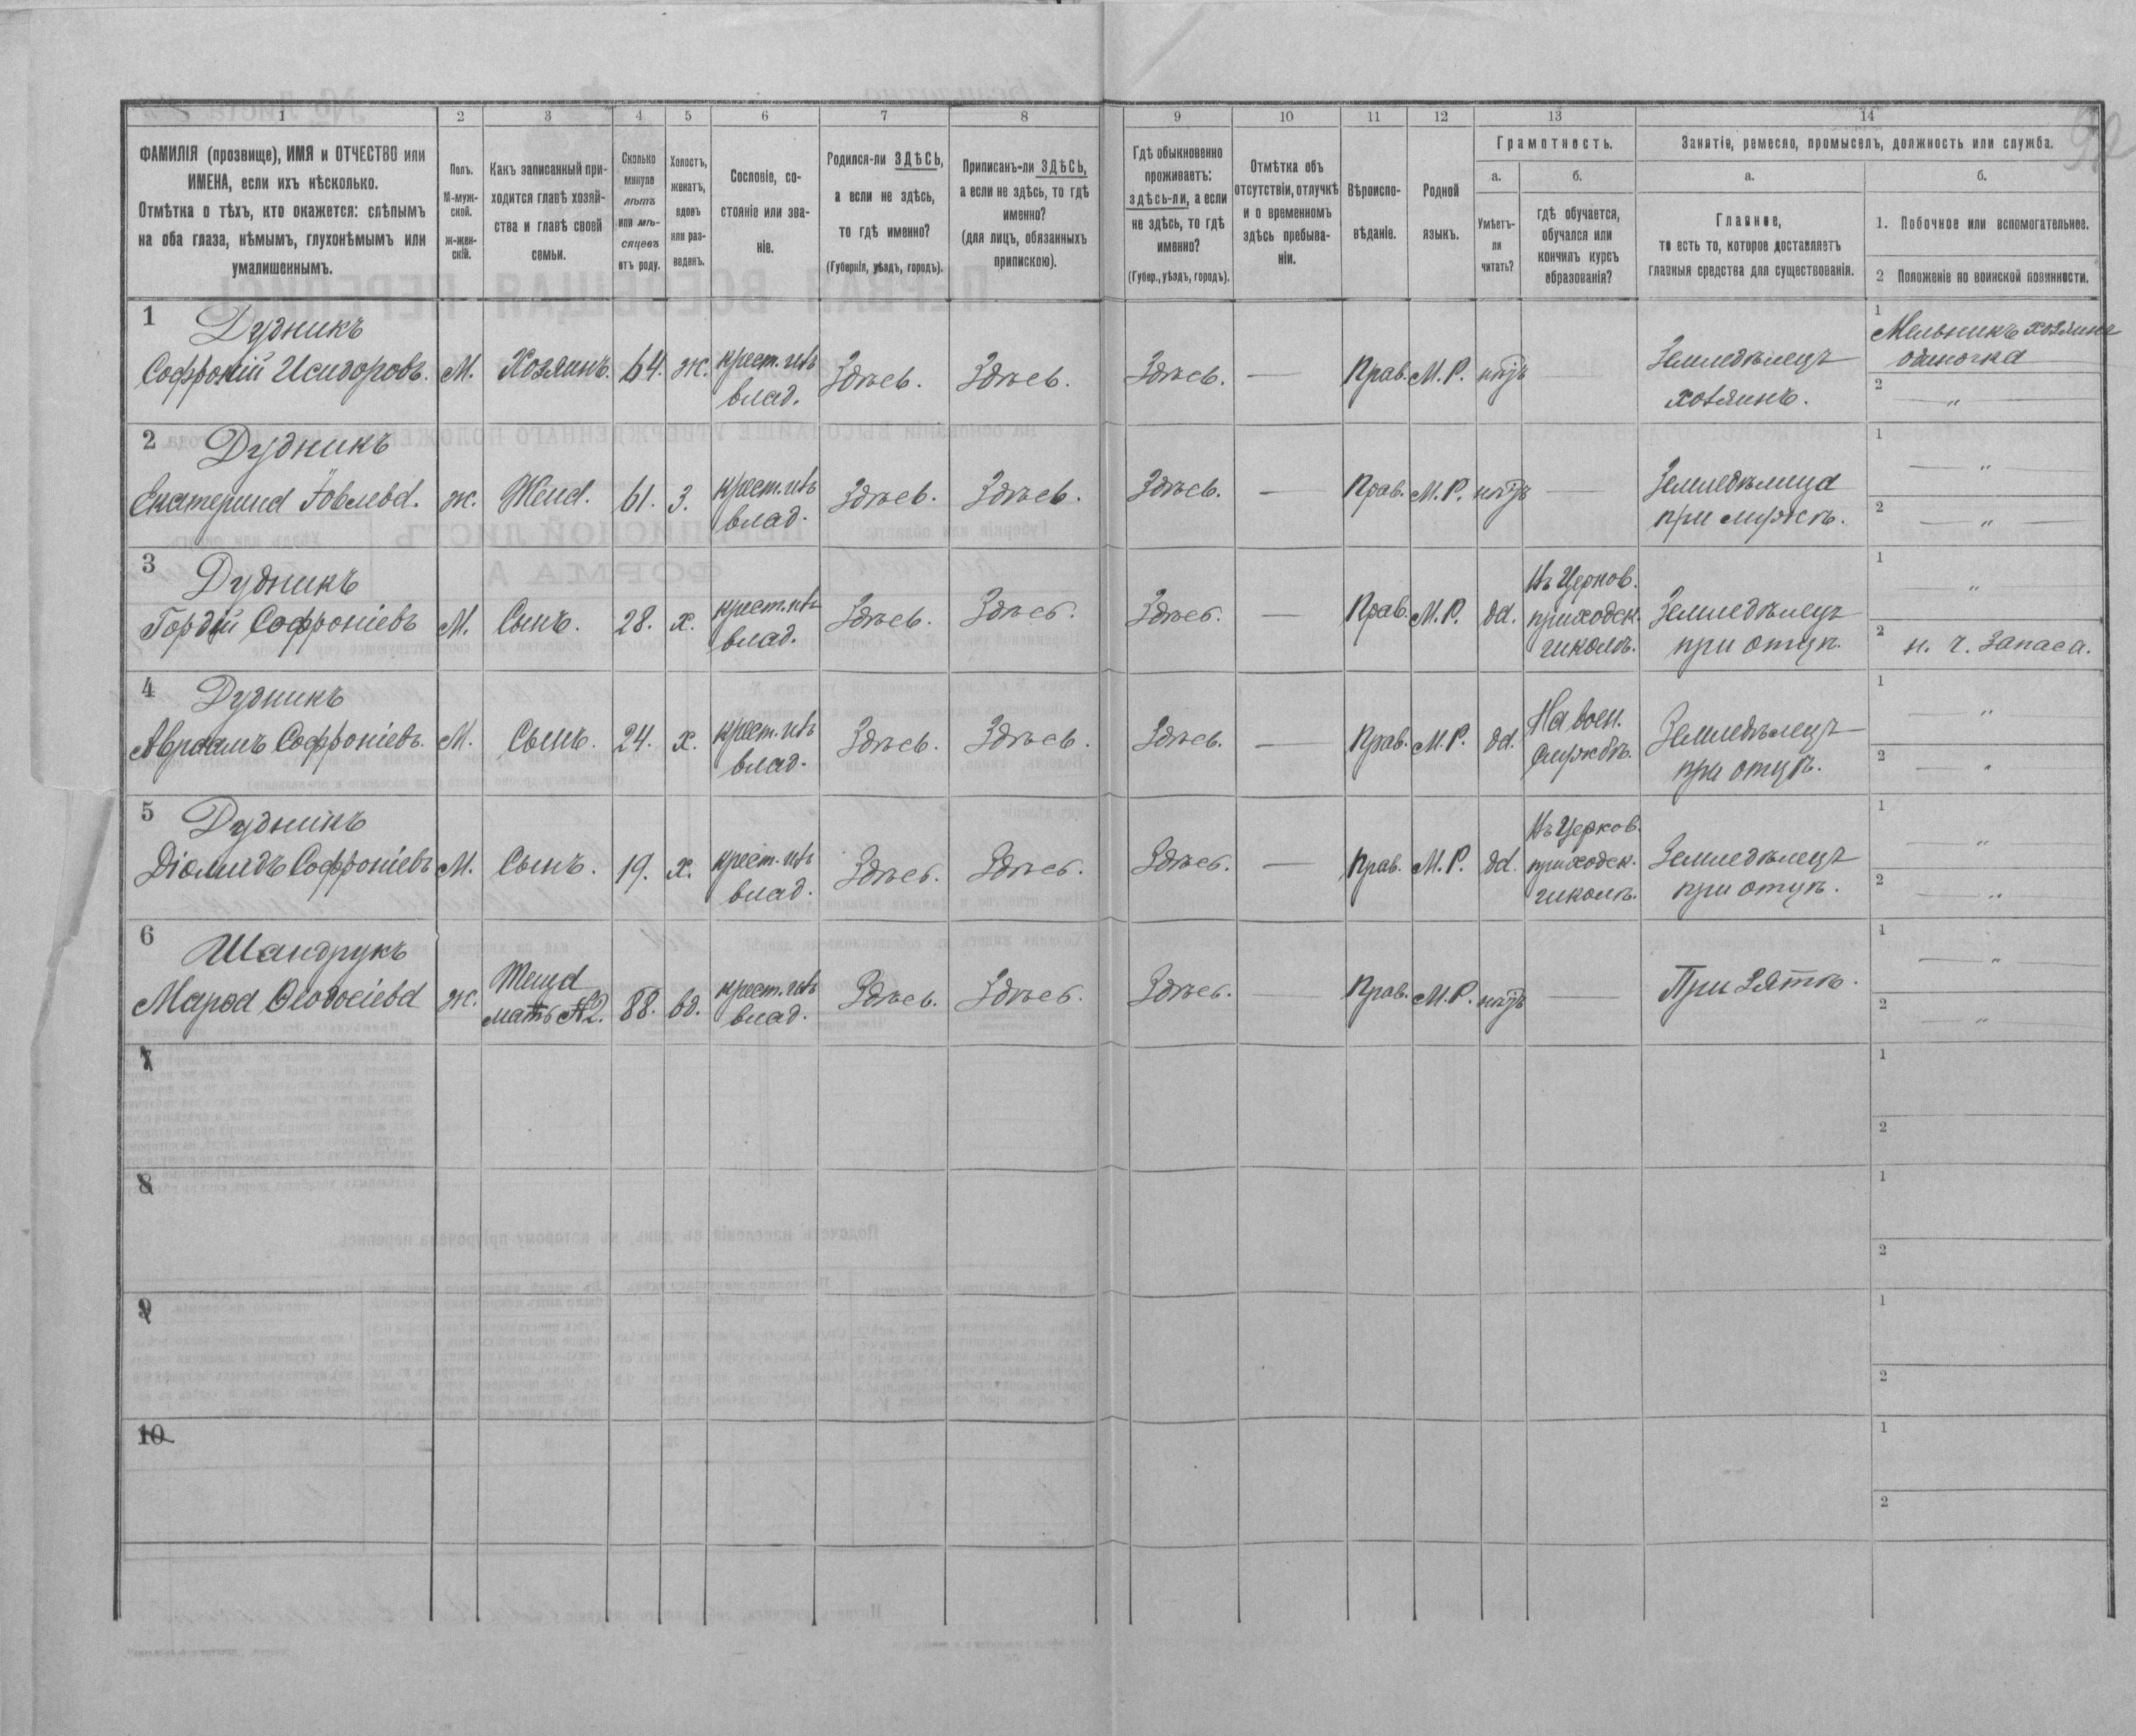 1 2 3 4 5 6 7 8 9 10 11 12 13 14
ФАМИЛІЯ (прозвище), ИМЯ и ОТЧЕСТВО или
ИМЕНА, если ихъ нѣсколько.
Отмѣтка о тѣхъ, кто окажется: слѣпымъ
на оба глаза, нѣмымъ, глухонѣмымъ или
умалишеннымъ.
Полъ.
М-муж-
ской.
ж-жен-
скій.
Какъ записанный при-
ходится главѣ хозяй-
ства и главѣ своей
семьи.
Сколько
минуло
лѣтъ
или мѣ-
сяцевъ
отъ роду.
Холостъ,
женатъ,
вдовъ
или раз-
веденъ.
Сословіе, со-
стояніе или зва-
ніе.
Родился-ли ЗДѢСЬ,
а если не здѣсь,
то гдѣ именно?
(Губернія, уѣздъ, городъ).
Приписанъ-ли ЗДѢСЬ,
а если не здѣсь, то гдѣ
именно?
(для лицъ, обязанныхъ
припискою).
Гдѣ обыкновенно
проживаетъ:
здѣсь-ли, а если
не здѣсь, то гдѣ
именно?
(Губер., уѣздъ, городъ).
Отмѣтка объ
отсутствіи, отлучкѣ
и о временномъ
здѣсь пребыва-
ніи.
Вѣроиспо-
вѣданіе.
Родной
языкъ.
Грамотность.
а.
Умѣетъ-
ли
читать?
б.
гдѣ обучается,
обучался или
кончилъ курсъ
образованія?
Занятіе, ремесло, промыселъ, должность или служба.
а.
Главное,
то есть то, которое доставляетъ
главныя средства для существованія.
б.
1. Побочное или вспомогательное.
2 Положеніе по воинской повинности.
1 Дудникъ
Софроній Исидоровъ. М. Хозяинъ. 64. ж. крест. изъ
влад. Здѣсь. Здѣсь. Здѣсь. — Прав. М.Р. нѣтъ Земледѣлецъ
хозяинъ.
1 Мельникъ хозяинъ
одиночка
2 "
2 Дудникъ
Екатерина Іовлева. ж. Жена. 61. З. крест. изъ
влад. Здѣсь. Здѣсь. Здѣсь. — Прав. М.Р. нѣтъ — Земледѣлица
при мужѣ.
1 — " —
2 — " —
3 Дудникъ
Гордій Софроніевъ М. Сынъ. 28. х. крест. изъ
влад. Здѣсь. Здѣсь. Здѣсь. — Прав. М.Р. да. Въ Церков.
приходск.
школѣ. Земледѣлецъ
при отцѣ.
1 "
2 н. ч. Запаса.
4 Дудникъ
Авраамъ Софроніевъ. М. Сынъ. 24. х. крест. изъ
влад. Здѣсь. Здѣсь. Здѣсь. — Прав. М.Р. да. На воен.
службѣ. Земледѣлецъ
при отцѣ.
1 "
2 — "
5 Дудникъ
Діомидъ Софроніевъ М. Сынъ. 19. х. крест. изъ
влад. Здѣсь. Здѣсь. Здѣсь. — Прав. М.Р. да. Въ Церков.
приходск.
школѣ. Земледѣлецъ
при отцѣ.
1 "
2 "
6 Шандрукъ
Марѳа Ѳеодосіева ж. Теща
мать №2. 88. вд. крест. изъ
влад. Здѣсь. Здѣсь. Здѣсь. — Прав. М.Р. нѣтъ — При Зятѣ.
1 "
2 — "
7
1
2
8
1
2
9
1
2
10
1
2